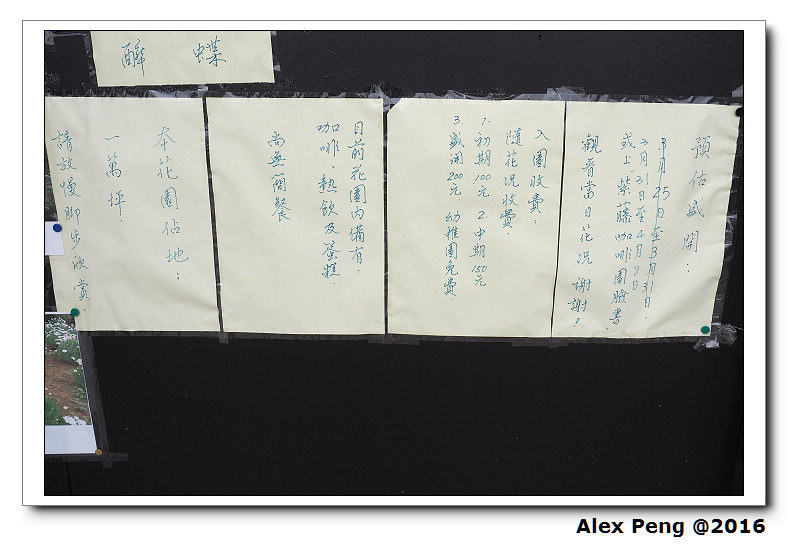 醉蝶
預估盛開：
3月25日至3月31日.
3月31日至4月8日
或上"紫藤咖啡園臉書
觀看當日花況. 謝謝!
入園收費：
隨花况收費.
1. 初期100元 2. 中期150元
3. 盛開200元 幼稚園免費.
目前花園內備有.
咖啡、熱飲及蛋糕.
尚無簡餐
本花園佔地：
一萬坪.
請放慢脚步欣賞.
Alex Peng @2016